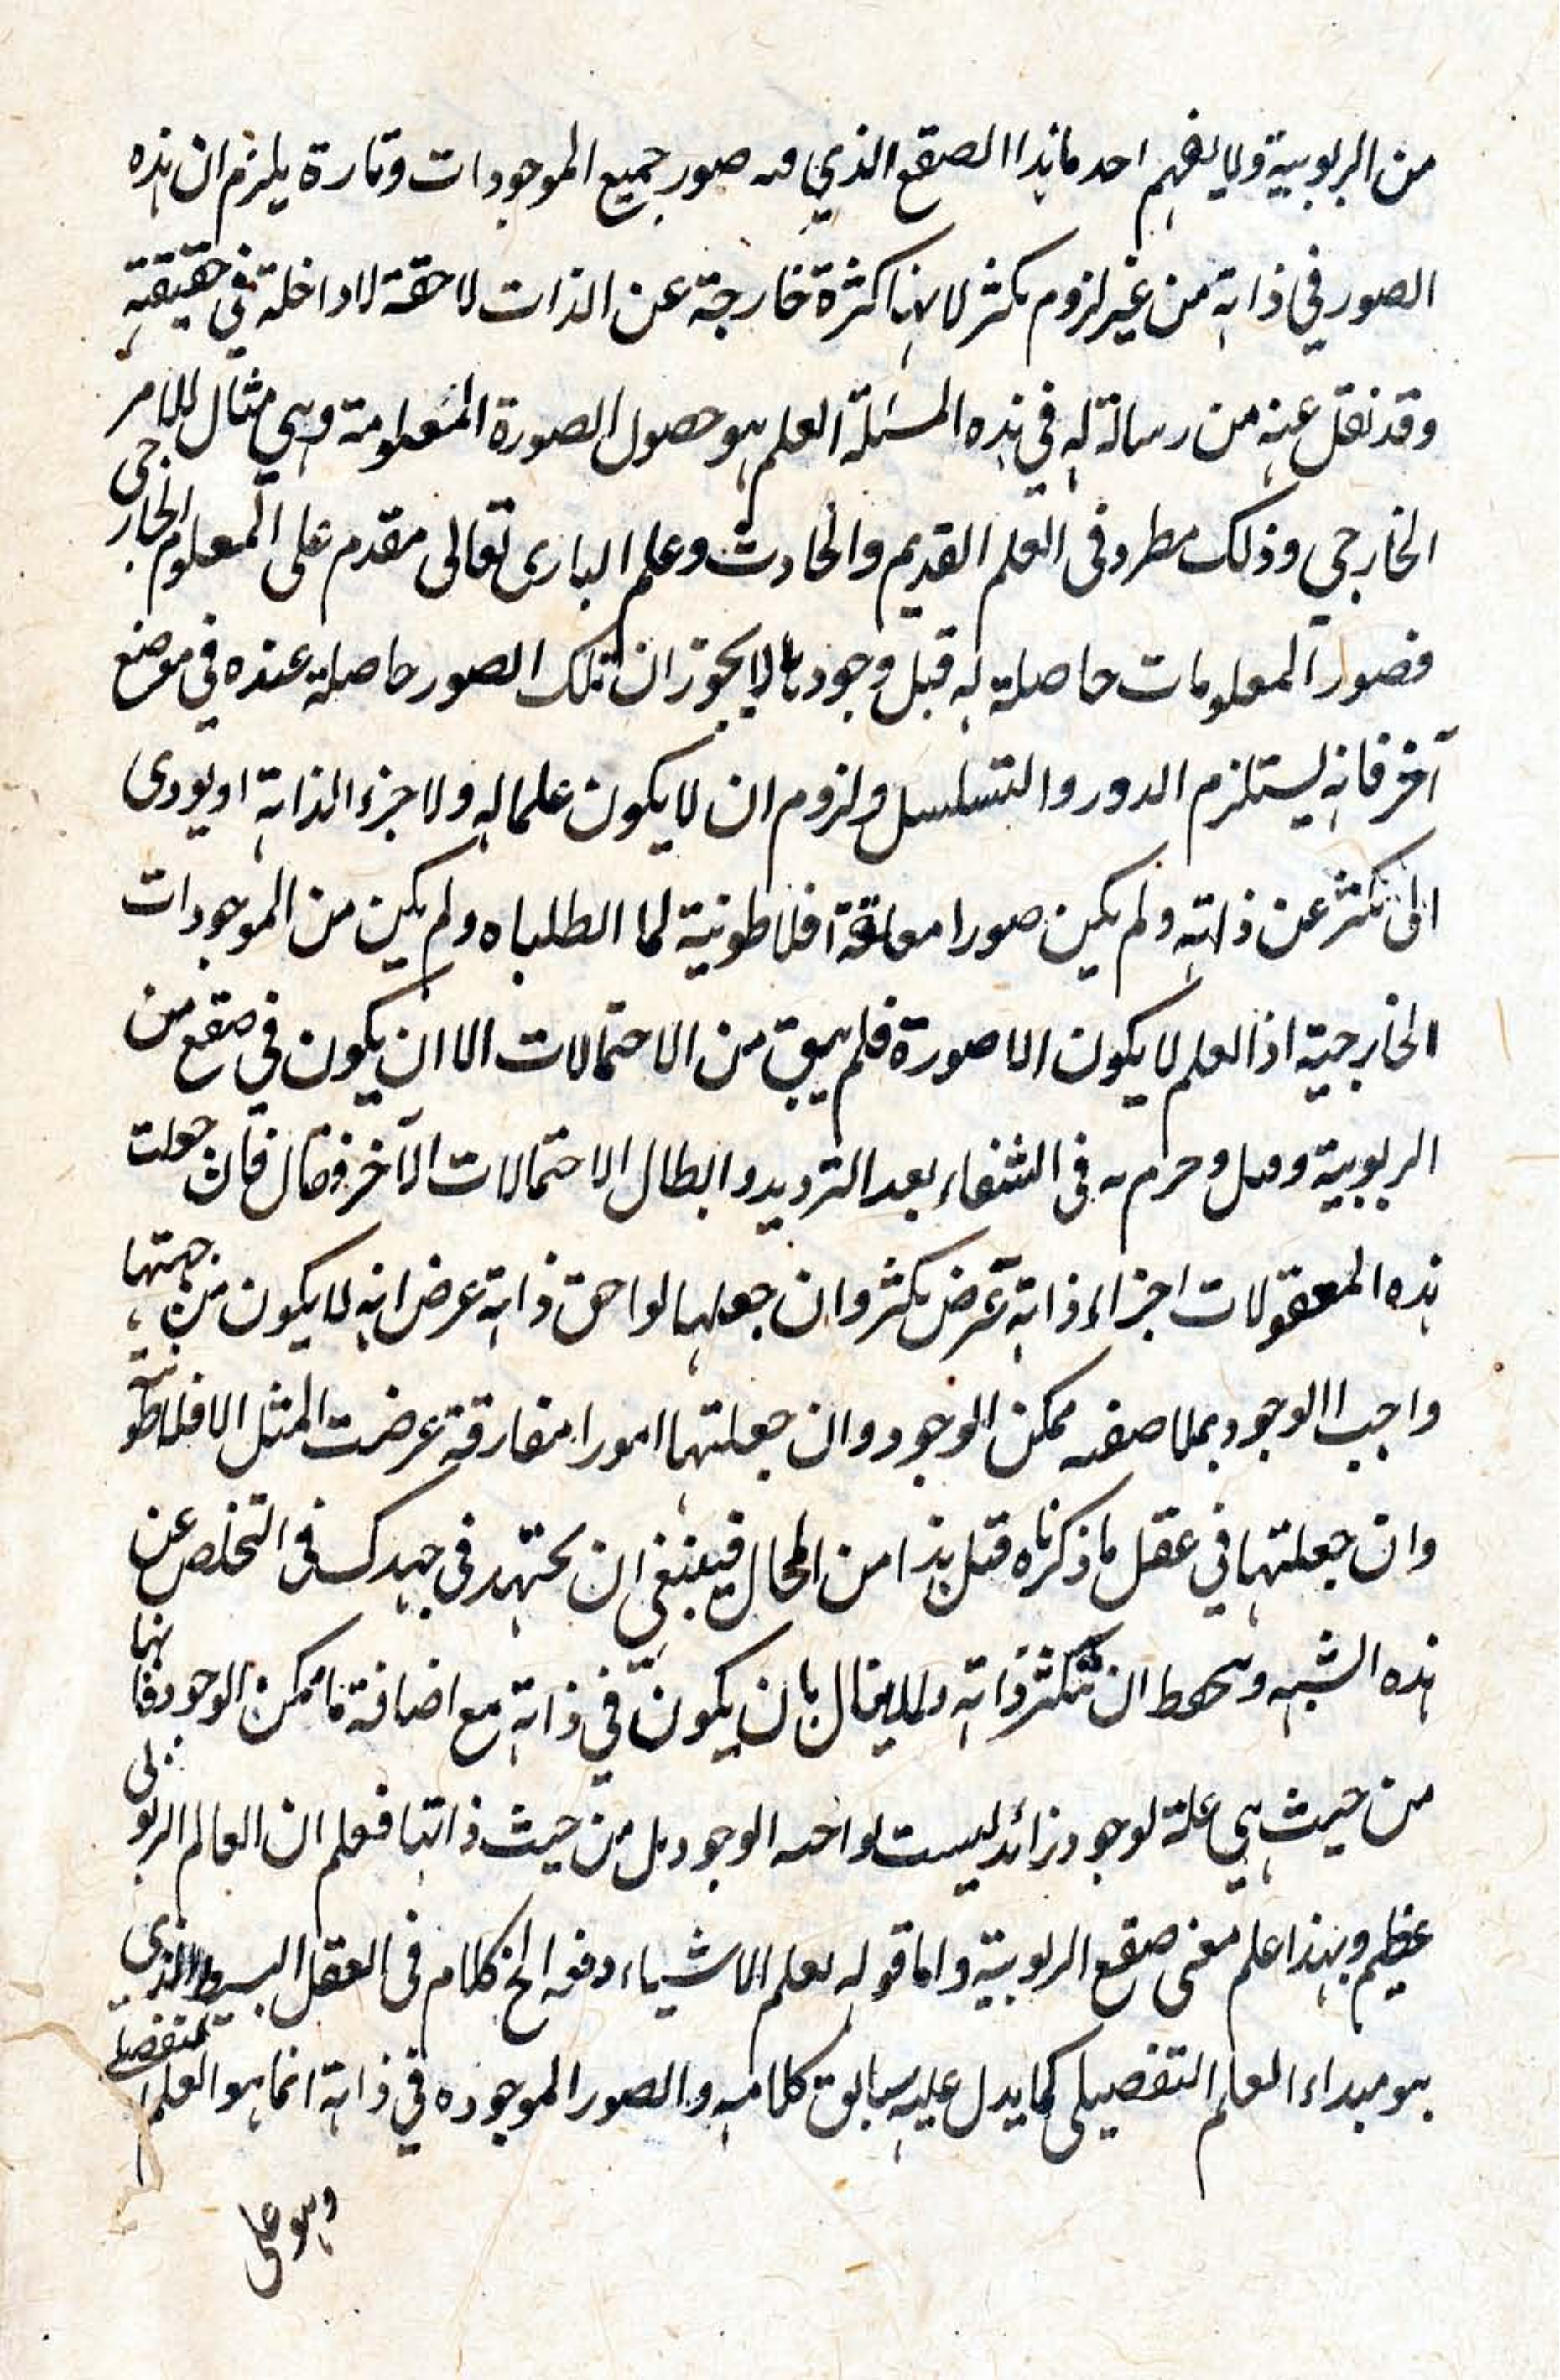 من الربوبية ولا يفهم احد ما هذا الصقع الذي فيه صور جميع الموجودات وتارة يلزم ان هذه
الصور في ذاته من غير لزوم تكثر لانها كثرة خارجة عن الذات لاحقة لا داخلة في حقيقته
وقد نقل عنه من رسالة له في هذه المسئلة العلم هو حصول الصورة المعلومة وهي مثال للامر
الخارجي وذلك مطرد في العلم القديم والحادث وعلم الباري تعالى مقدم على المعلوم الخارجي
فصور المعلومات حاصلة له قبل وجودها لا يجوز ان تلك الصور حاصلة عنده في موضع
آخر فانه يستلزم الدور والتسلسل ولزوم ان لا يكون علما له ولا جزء الذاته او يودى
الى تكثر عن ذاته ولم يكن صورا معلقة افلاطونية لما ابطلناه ولم يكن من الموجودات
الخارجية اذ العلم لا يكون الا صورة فلم يبق من الاحتمالات الا ان يكون في صقع من
الربوبية وجزم به في الشفاء بعد الترديد وابطال الاحتمالات الآخر فقال فان جعلت
هذه المعقولات اجزاء ذاته عرض تكثر وان جعلها لواحق ذاته عرض انه لا يكون من جهتها
واجب الوجود بملاصقه ممكن الوجود وان جعلتها امورا مفارقة عرضت المثل الافلاطونية
وان جعلتها في عقل ما ذكرناه قبل هذا من المحال فينبغي ان يجتهد في جهدك في التخلص عن
هذه الشبه وتتحفظ ان تتكثر ذاته ولا يبال بان يكون في ذاته مع اضافة ما ممكن الوجود فانها
من حيث هي علة لوجود زائد ليست لواجب الوجود بل من حيث ذاتها فعلم ان العالم الربوبى
عظيم وبهذا علم معنى صقع الربوبية واما قوله يعلم الاشياء دفعة الخ كلام في العقل البسيط الذي
هو مبداء العلم التفصيلى كما يدل عليه سابق كلامه والصور الموجوده في ذاته انما هو العلم التفصيلى
وهو على